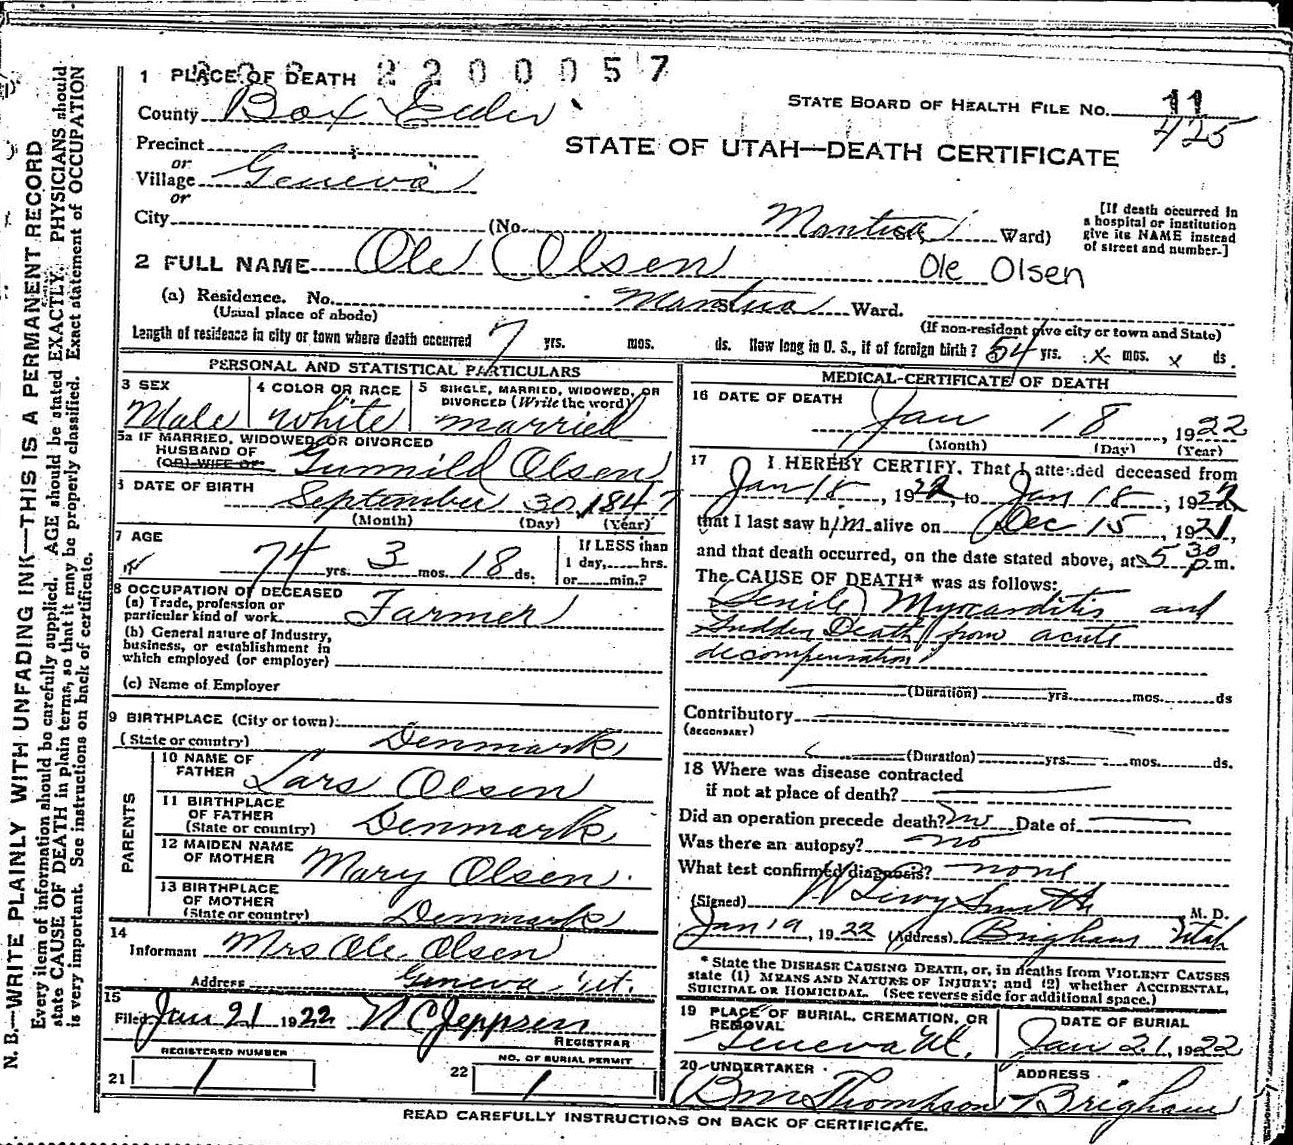 2200057
1 PLACE OF DEATH
County Box Elder
STATE BOARD OF HEALTH FILE No. 11
425
Precinct
or
Village Geneva
or
STATE OF UTAH—DEATH CERTIFICATE
City (No. Mantua Ward)
[If death occurred in
a hospital or institution
give its NAME instead
of street and number.]
2 FULL NAME Ole Olsen Ole Olsen
(a) Residence. No. Mantua Ward.
(Usual place of abode) (If non-resident give city or town and State)
Length of residence in city or town where death occurred 7 yrs. mos. ds. How long in U. S., if of foreign birth? 54 yrs. x mos. x ds
PERSONAL AND STATISTICAL PARTICULARS
3 SEX 4 COLOR OR RACE 5 SINGLE, MARRIED, WIDOWED, OR
DIVORCED (Write the word)
Male white married
5a IF MARRIED, WIDOWED, OR DIVORCED
HUSBAND OF
(OR) WIFE OF Gunnild Olsen
6 DATE OF BIRTH September 30, 1847
(Month) (Day) (Year)
7 AGE If LESS than
74 yrs. 3 mos. 18 ds. 1 day,____hrs.
or____min.?
8 OCCUPATION OF DECEASED
(a) Trade, profession or
particular kind of work Farmer
(b) General nature of Industry,
business, or establishment in
which employed (or employer)
(c) Name of Employer
9 BIRTHPLACE (City or town)
(State or country) Denmark
PARENTS
10 NAME OF
FATHER Lars Olsen
11 BIRTHPLACE
OF FATHER
(State or country) Denmark
12 MAIDEN NAME
OF MOTHER Mary Olsen.
13 BIRTHPLACE
OF MOTHER
(State or country) Denmark
14
Informant Mrs Ole Olsen
Address Geneva Ut.
15
Filed Jan 21 1922 N C Jeppsen
REGISTRAR
REGISTERED NUMBER NO. OF BURIAL PERMIT
21 1 22 1
MEDICAL CERTIFICATE OF DEATH
16 DATE OF DEATH
Jan 18, 1922
(Month) (Day) (Year)
17 I HEREBY CERTIFY, That I attended deceased from
Jan 18, 1922, to Jan 18, 1922
that I last saw him alive on Dec 15, 1921,
and that death occurred, on the date stated above, at 5 30 p.m.
The CAUSE OF DEATH* was as follows:
(Senile) Myocarditis and
Sudden Death from acute
decompensation
(Duration) yrs. mos. ds
Contributory
(SECONDARY)
(Duration) yrs. mos. ds.
18 Where was disease contracted
if not at place of death?
Did an operation precede death? no Date of
Was there an autopsy? no
What test confirmed diagnosis? none
(Signed) Smith M. D.
Jan 19, 1922 (Address) Brigham Utah
* State the DISEASE CAUSING DEATH, or, in deaths from VIOLENT CAUSES
state (1) MEANS AND NATURE OF INJURY; and (2) whether ACCIDENTAL,
SUICIDAL OR HOMICIDAL. (See reverse side for additional space.)
19 PLACE OF BURIAL, CREMATION, OR
REMOVAL DATE OF BURIAL
Geneva Ut. Jan 21, 1922
20 UNDERTAKER ADDRESS
Thompson Brigham
READ CAREFULLY INSTRUCTIONS ON BACK OF CERTIFICATE.
N. B.—WRITE PLAINLY WITH UNFADING INK—THIS IS A PERMANENT RECORD
Every item of information should be carefully supplied. AGE should be stated EXACTLY. PHYSICIANS should
state CAUSE OF DEATH in plain terms, so that it may be properly classified. Exact statement of OCCUPATION
is very important. See instructions on back of certificate.